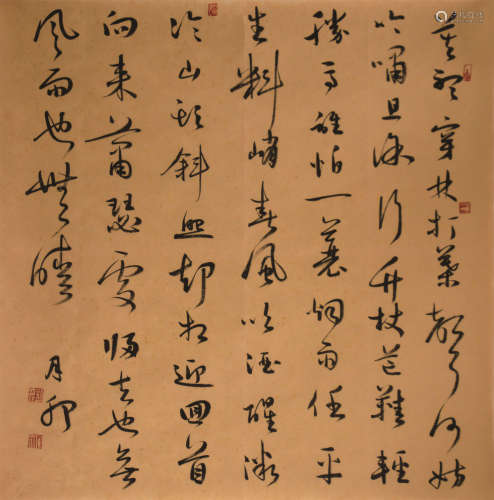 莫聽穿林打葉聲何妨
吟嘯且徐行竹杖芒鞋輕
勝馬誰怕一蓑烟雨任平
生料峭春風吹酒醒微
冷山頭斜照却相迎回首
向來蕭瑟處歸去也無
風雨也無晴
月